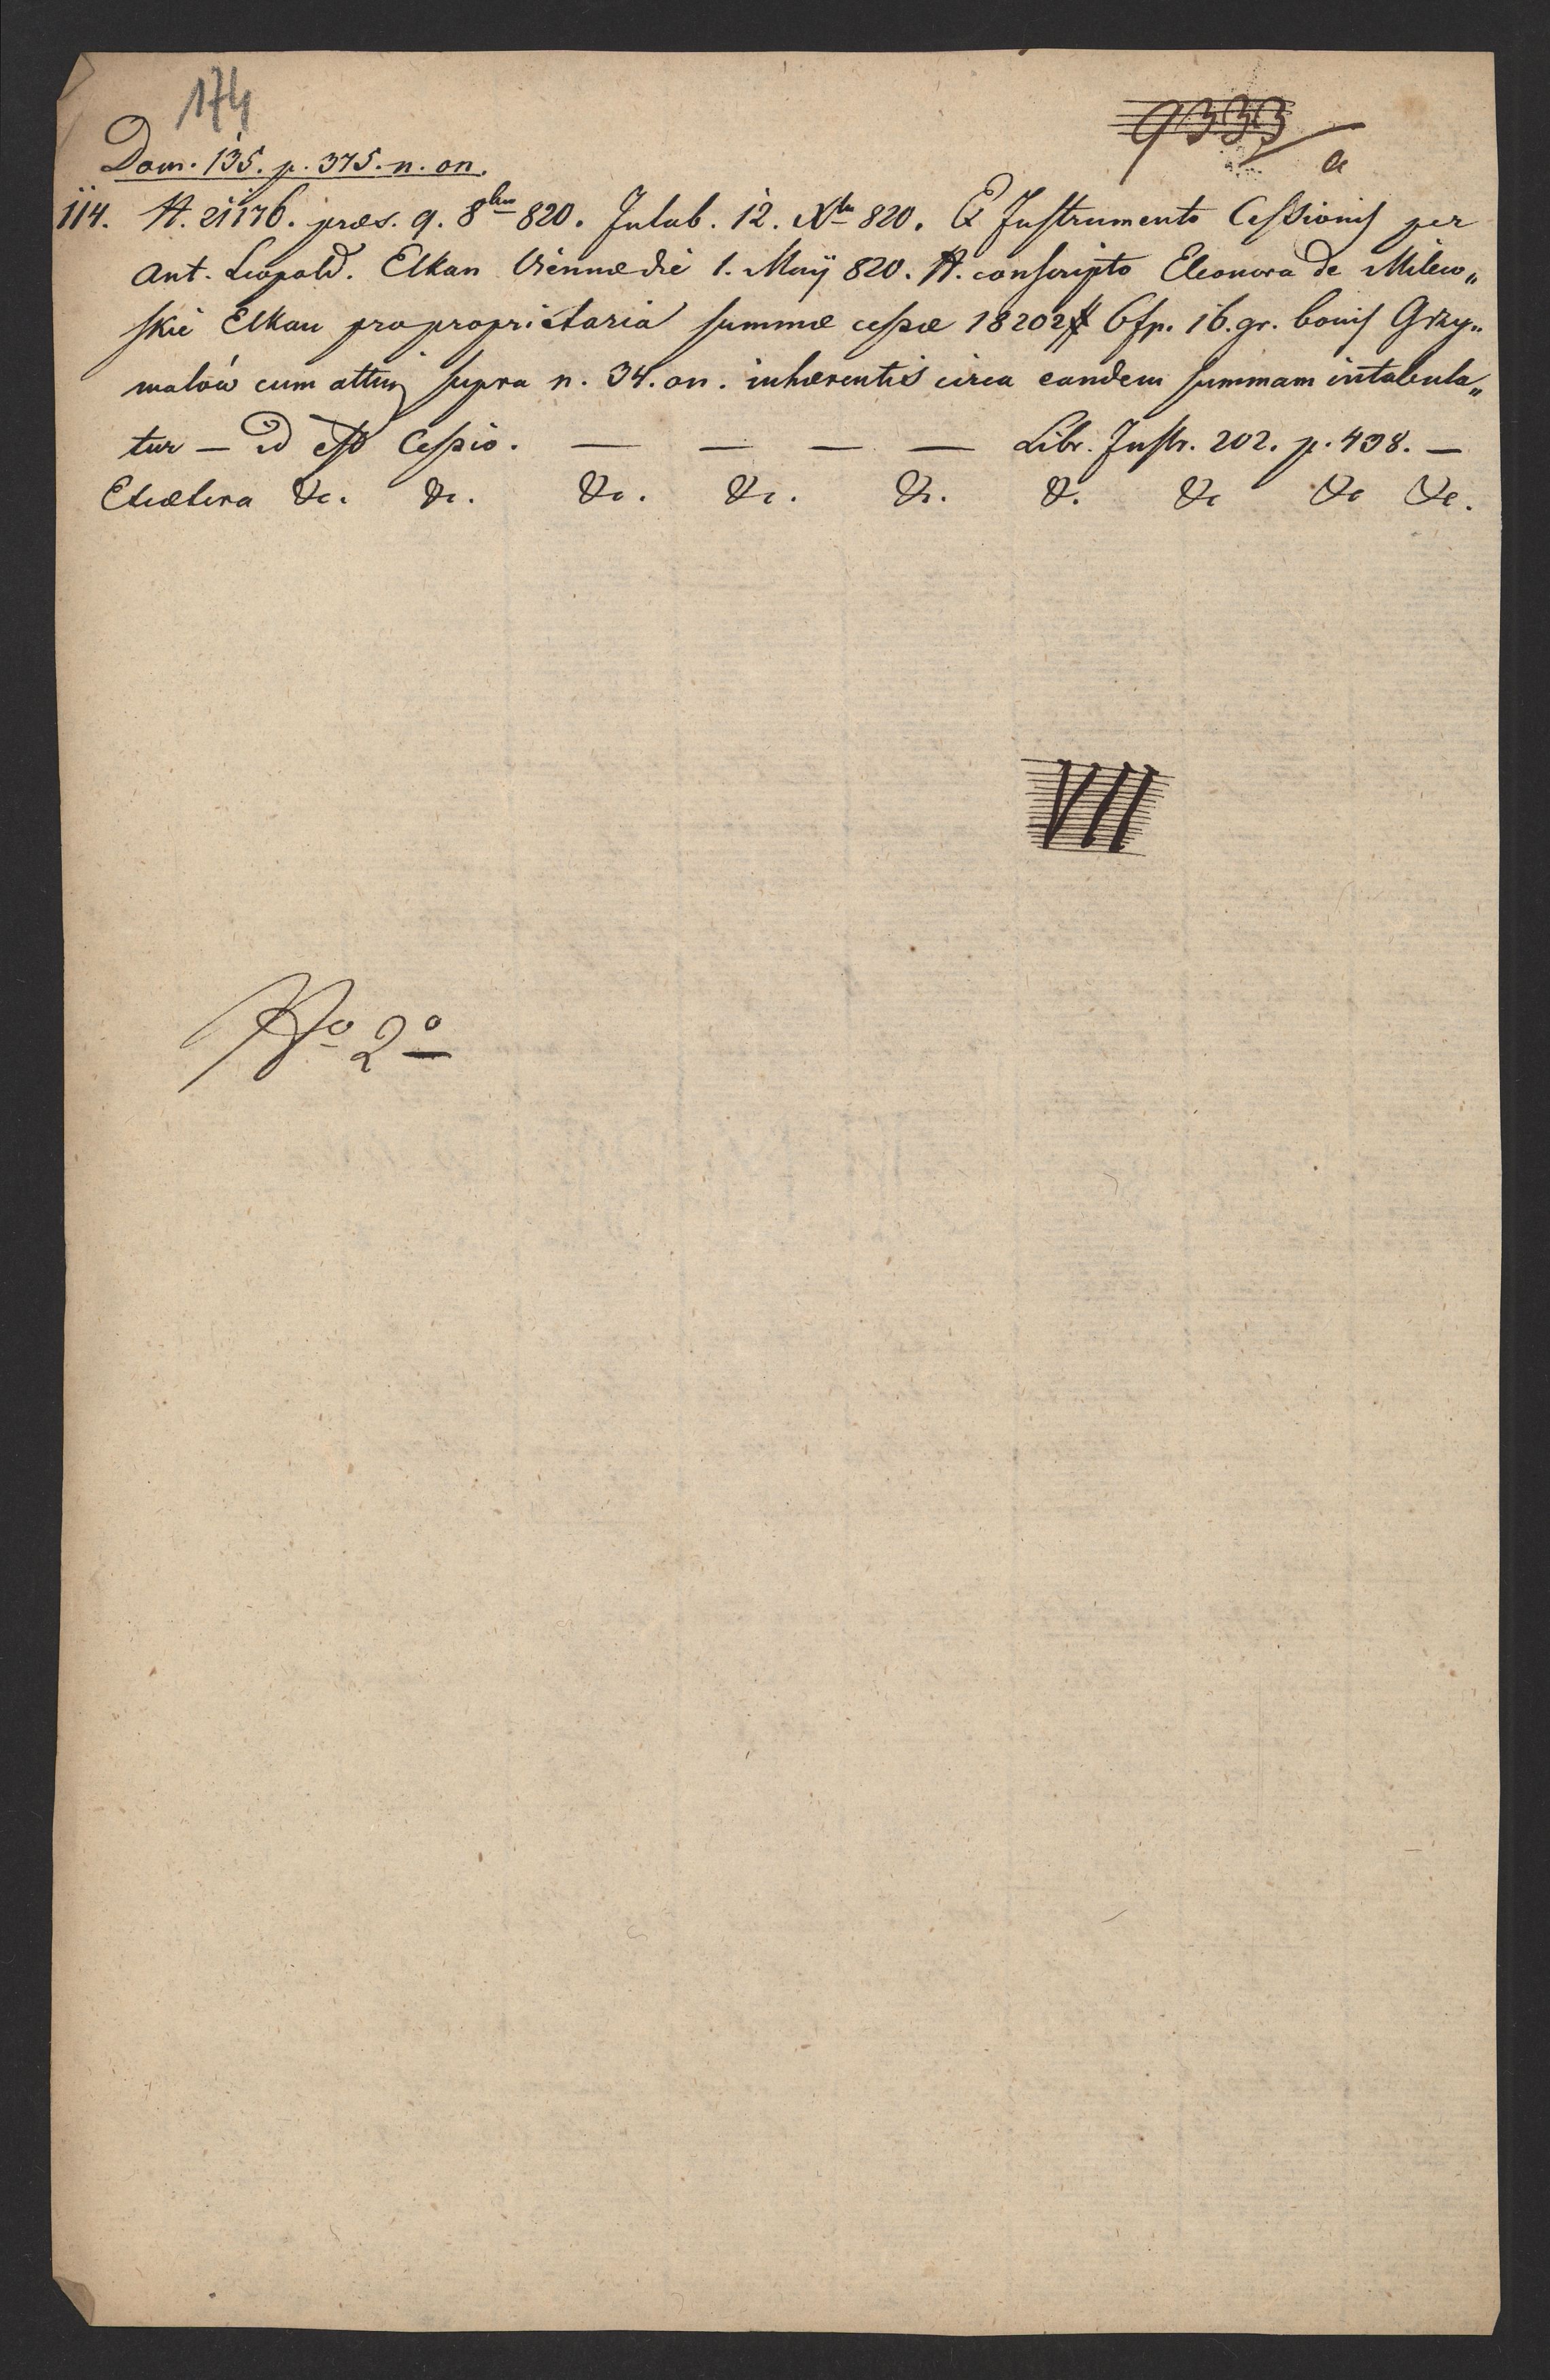 174
9333
a
Dom. 135. p. 375. n. on.
114. N. 21176. præs. 9. 8bris 820. Intab. 12. Xbr 820. E Instrumento Cessionis per
Ant. Leopold. Elkan Viennæ die 1. Maÿ 820. N. conscripto Eleonora de Milew„
skie Elkan pro proprietaria summæ cessæ 18202# 6fp. 16. gr. bonis Grzy„
małów cum attin supra n. 34. on. inhærentis circa eandem summam intabula„
tur — id est Cessio. — — — — Libr. Instr. 202. p. 438. —
Etcætera &c. &c. &c. &c. &c. &. &c &c &c.
VII
No 2o